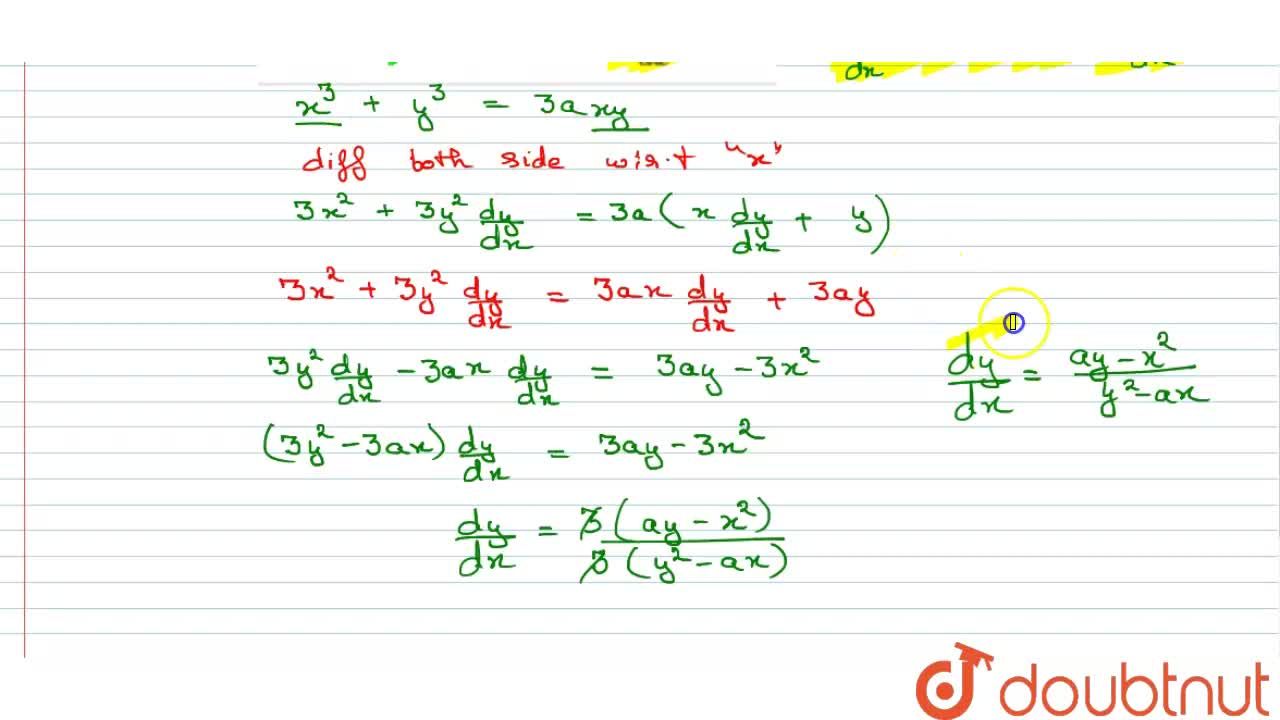 dx dx
x³ + y³ = 3axy
diff both side w.r.t "x"
3x² + 3y² dy/dx = 3a(x dy/dx + y)
3x² + 3y² dy/dx = 3ax dy/dx + 3ay
3y² dy/dx - 3ax dy/dx = 3ay - 3x²
(3y² - 3ax) dy/dx = 3ay - 3x²
dy/dx = 3(ay - x²)/3(y² - ax)
dy/dx = ay - x²/y² - ax
doubtnut